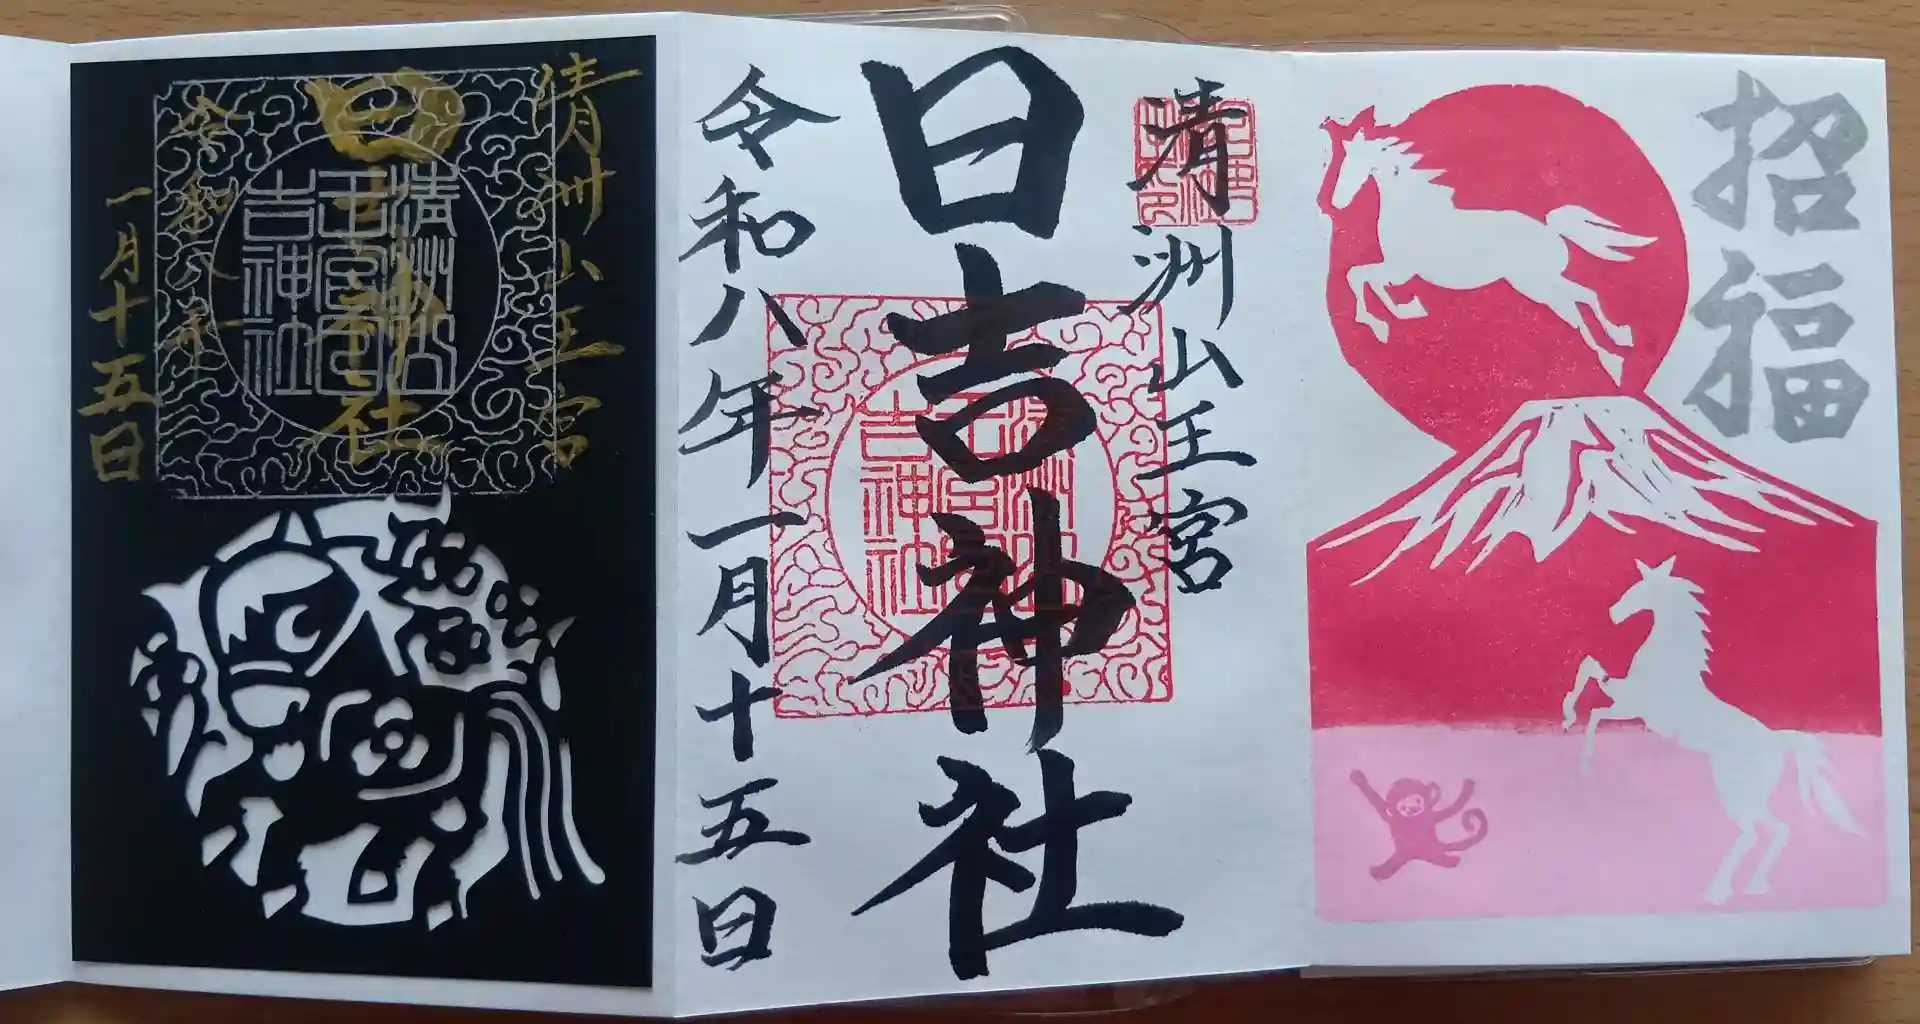 招福
清洲山王宮
日吉神社
令和八年一月十五日
清洲山
王宮日
吉神社
清洲山王宮
日吉神社
令和八年
一月十五日
清洲山
王宮日
吉神社